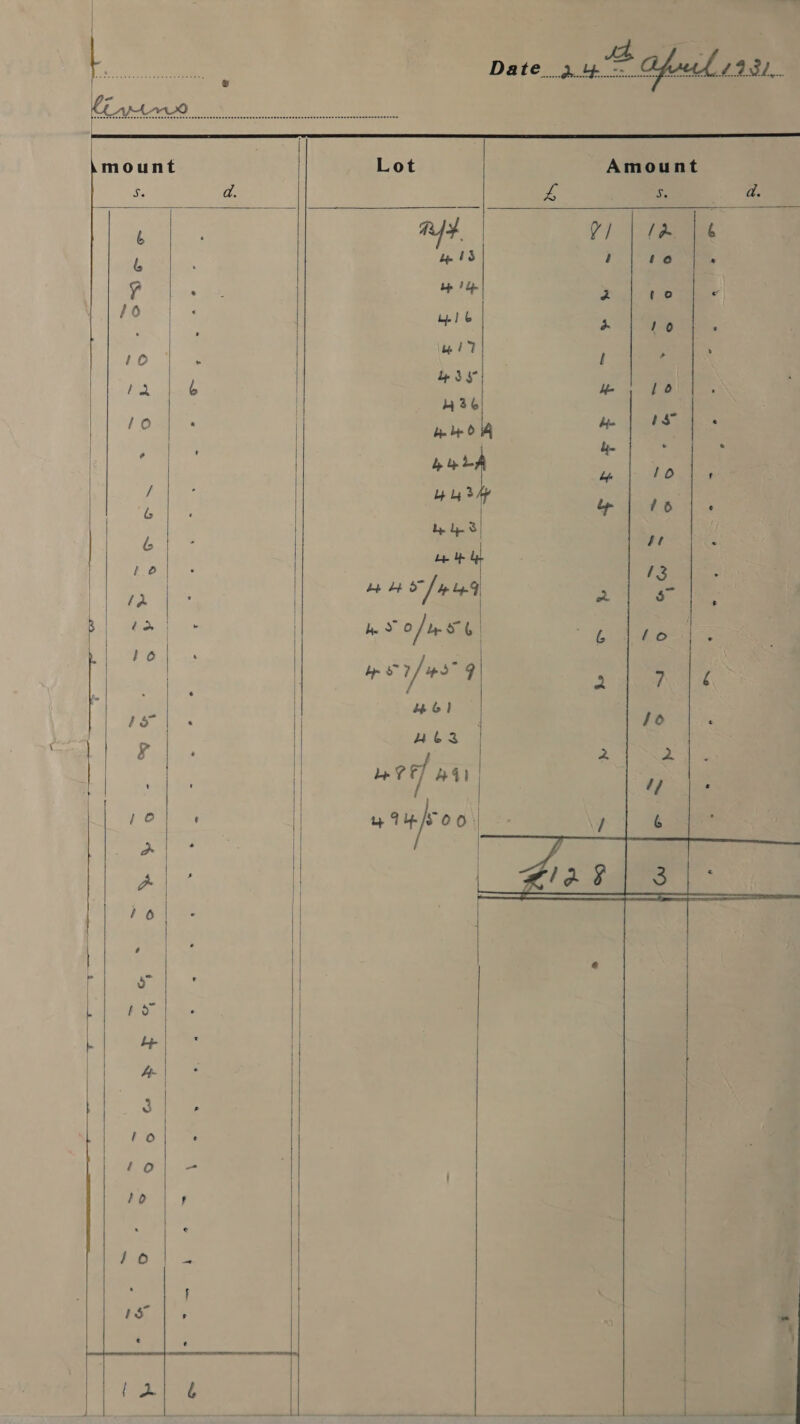 Date 24th April 1931.
Amount Lot Amount
s. d. £ s. d.
6 . B/F. 81 12 6
6 . 413 1 10 .
8 . 414 2 10 .
10 . 416 2 10 .
. . 417 1 . .
10 . 435 4 10 .
12 6 436 4 15 .
10 . 440A 4 . .
. . 442A 4 10 .
1 . 443A 4 10 .
6 . 443 11 .
6 . 444 13 .
10 . 445/449 2 5 .
12 . 450/456 6 10 .
12 . 457/459 2 7 6
10 . 461 10 .
. . 463 2 2 .
15 . 488/491 11 .
8 . 494/500 1 6 .
. . £128 3 .
10 .
2 .
2 .
10 .
. .
5 .
15 .
4 .
4 .
3 .
10 .
10 -
10 .
. .
10 -
. .
15 .
. .
12 6